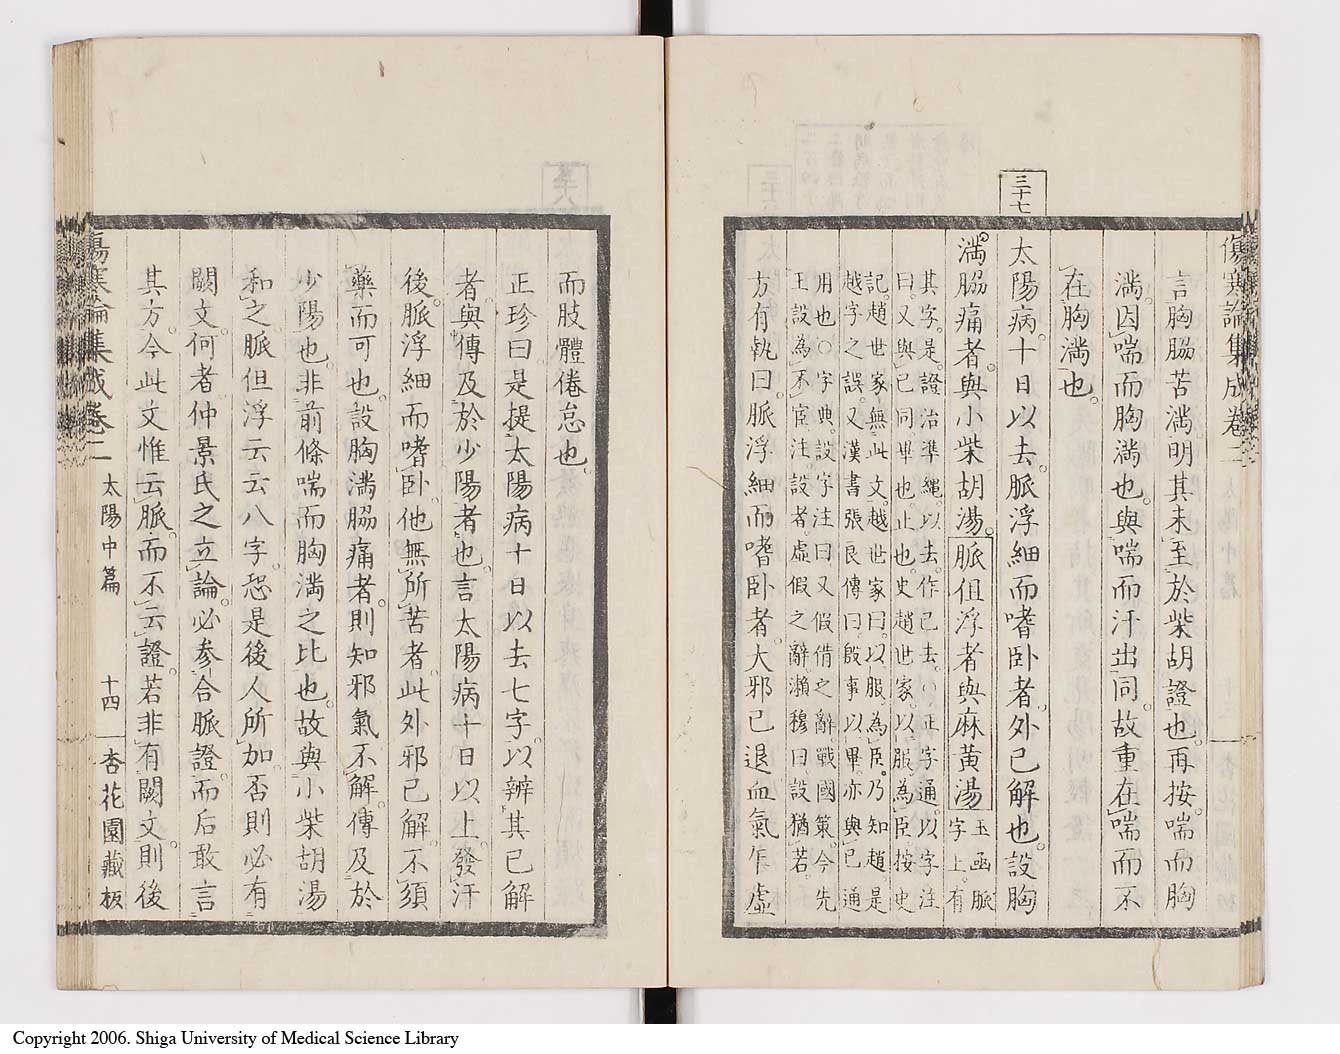 傷寒論集成卷二
言胸脇苦滿。明其未至於柴胡證也。再按。喘而胸
滿。因喘而胸滿也。與喘而汗出同。故重在喘而不
在胸滿也。
三十七
太陽病。十日以去。脈浮細而嗜卧者。外已解也。設胸
滿脇痛者。與小柴胡湯。脈但浮者與麻黃湯 玉函脈
字上。有
其字。是。證治準繩以去。作已去。○正字通。以字注
曰。又與已同。畢也。止也。史趙世家。以服為臣。按史
記。趙世家無此文。越世家曰。以服為臣。乃知趙是
越字之誤。又漢書張良傳曰。殷事以畢。亦與已通
用也。○字典。設字注曰。又假借之辭。戰國策。今先
王設為不宦。注。設者。虛假之辭。瀨穆曰。設猶若。
方有執曰。脈浮細而嗜卧者。大邪已退。血氣乍虛
而肢體倦怠也。
正珍曰。是提太陽病十日以去七字。以辨其已解
者。與傳及於少陽者也。言太陽病十日以上。發汗
後。脈浮細而嗜卧。他無所苦者。此外邪已解。不須
藥而可也。設胸滿脇痛者。則知邪氣不解。傳及於
少陽也。非前條喘而胸滿之比也。故與小柴胡湯
和之。脈但浮云云八字。恐是後人所加。否則必有
闕文。何者。仲景氏之立論。必參合脈證。而后敢言
其方。今此文惟云脈。而不云證。若非有闕文。則後
傷寒論集成卷二 太陽中篇 十四 杏花園藏板